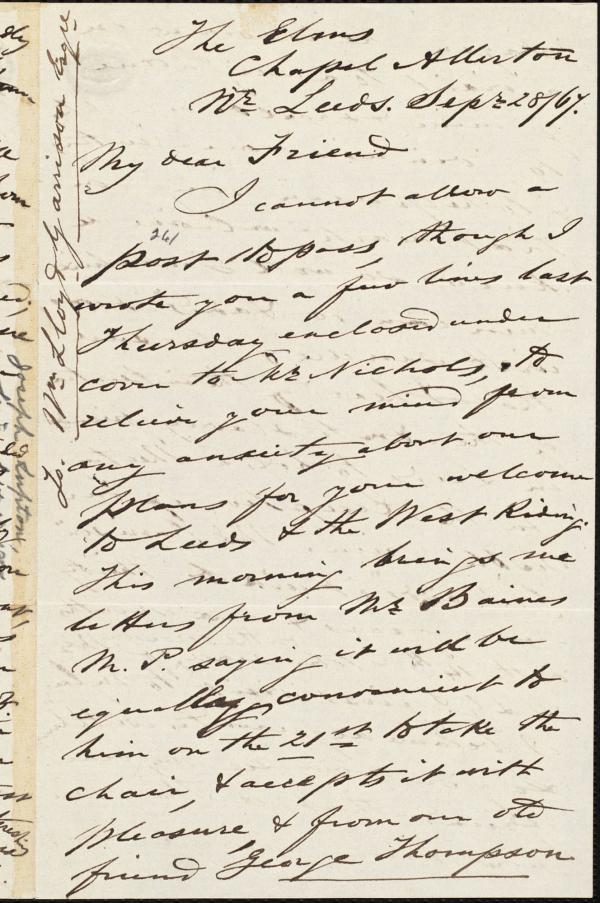 The Elms
Chapel Allerton
Nr. Leeds. Sepr. 28/67.
My dear Friend
I cannot allow a
261
post to pass, though I
wrote you a few lines last
Thursday enclosed under
cover to Mr. Nichols, to
relieve your mind from
any anxiety about our
plans for your welcome
to Leeds & the West Riding.
This morning brings me
letters from Mr. Baines
M.P. saying it will be
equally convenient to
him on the 21st to take the
chair, & accepts it with
pleasure, & from our old
friend George Thompson
To Wm. Lloyd Garrison Esqre
Joseph Lupton,